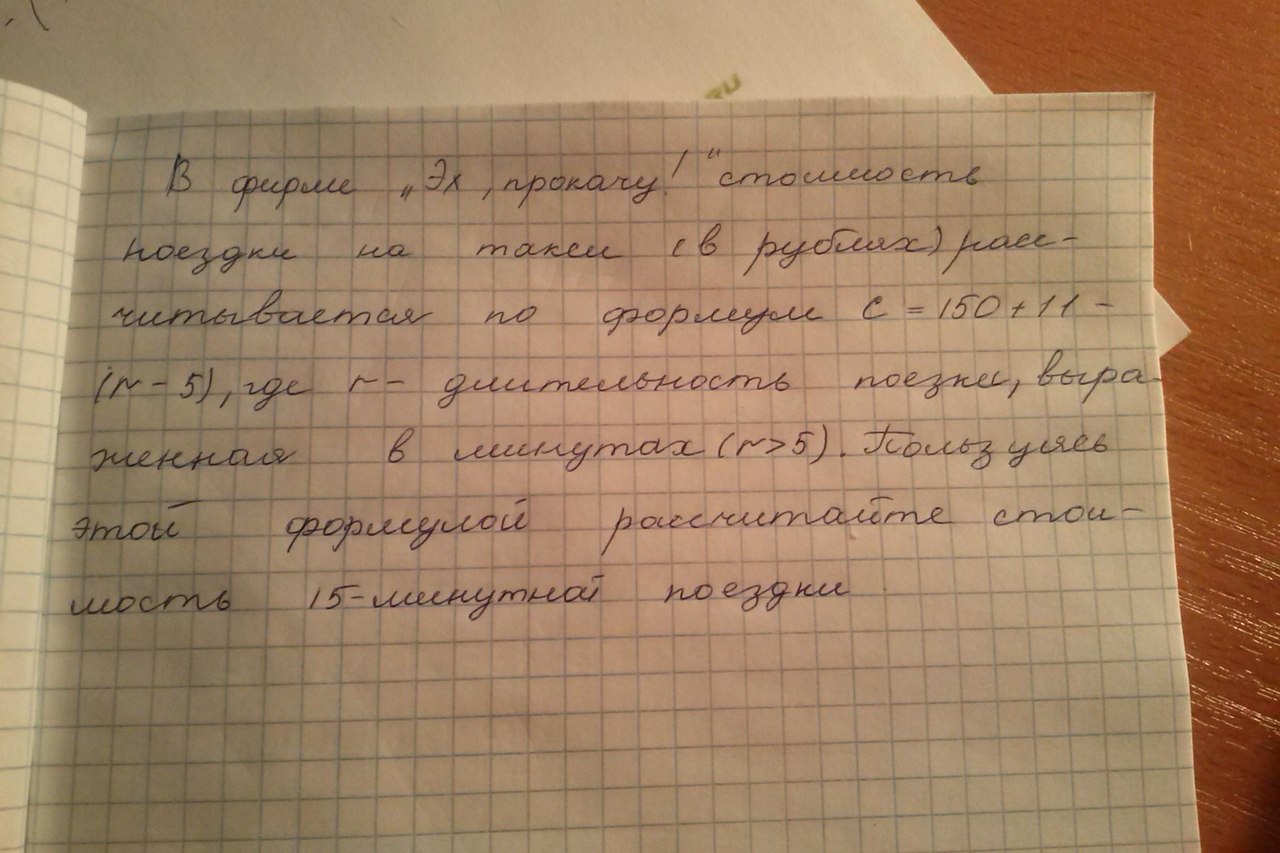 В фирме „Эх, прокачу!“ стоимость
поездки на такси (в рублях) расс-
читывается по формул C = 150 + 11 -
(r - 5), где r - длительность поезки, выра-
женная в минутах (r > 5). Пользуясь
этой формулой рассчитайте стои-
мость 15-минутной поездки